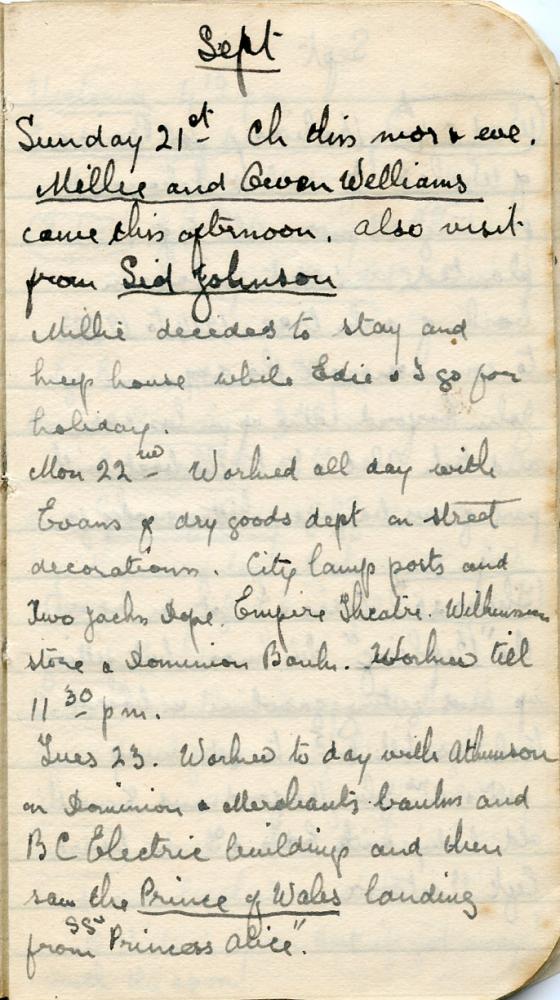 Sept
Sunday 21st Ch this mor & eve.
Millie and Owen Williams
came this afternoon. also visit
from Sid Johnson
Millie decided to stay and
keep house while Edie & I go for
holiday.
Mon 22nd Worked all day with
Evans of dry goods dept on street
decorations. City lamp posts and
Two Jacks Dope. Empire Theatre. Wilkinson
store & Dominion Bank. Worked till
11 30 pm.
Tues 23. Worked to day with Atkinson
on Dominion & Merchants banks and
B C Electric buildings and then
saw the Prince of Wales landing
from SS "Princess Alice".